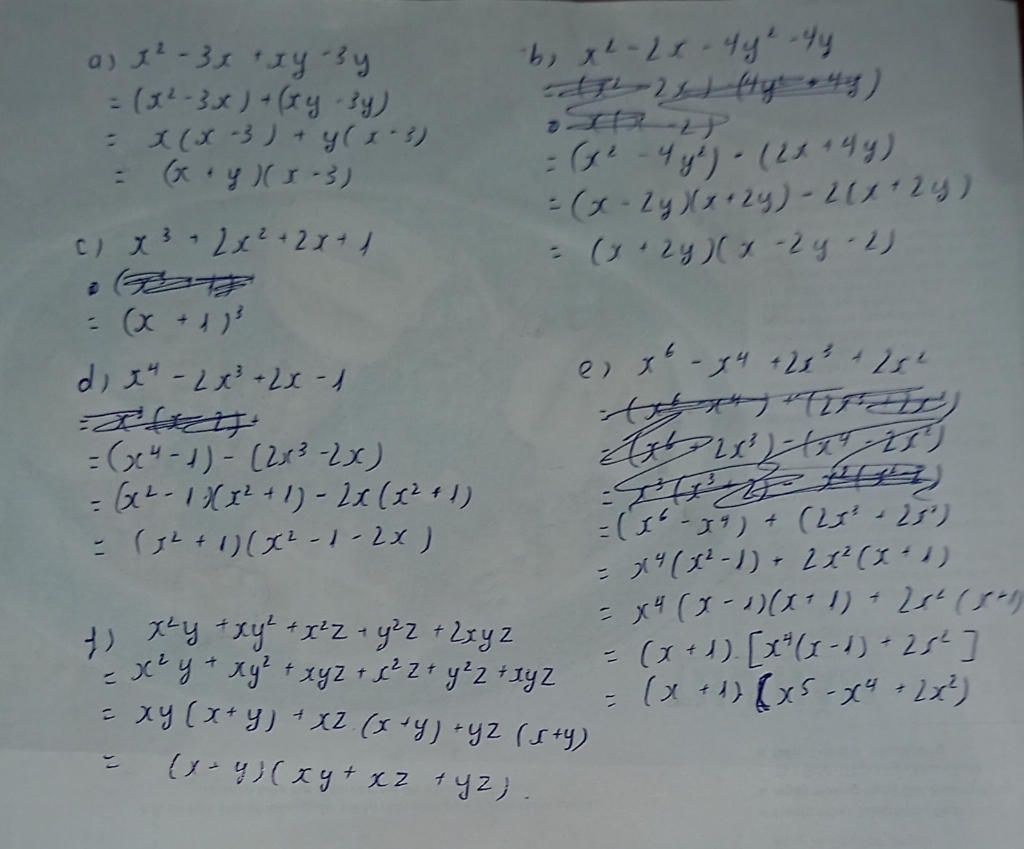 a) x² - 3x + xy - 3y
= (x² - 3x) + (xy - 3y)
= x(x - 3) + y(x - 3)
= (x + y)(x - 3)
b) x² - 2x - 4y² - 4y
= (x² - 4y²) - (2x + 4y)
= (x - 2y)(x + 2y) - 2(x + 2y)
= (x + 2y)(x - 2y - 2)
c) x³ + 2x² + 2x + 1
= (x + 1)³
d) x⁴ - 2x³ + 2x - 1
= (x⁴ - 1) - (2x³ - 2x)
= (x² - 1)(x² + 1) - 2x(x² + 1)
= (x² + 1)(x² - 1 - 2x)
e) x⁶ - x⁴ + 2x³ + 2x²
= (x⁶ - x⁴) + (2x³ + 2x²)
= x⁴(x² - 1) + 2x²(x + 1)
= x⁴(x - 1)(x + 1) + 2x²(x + 1)
= (x + 1).[x⁴(x - 1) + 2x²]
= (x + 1)(x⁵ - x⁴ + 2x²)
f) x²y + xy² + x²z + y²z + 2xyz
= x²y + xy² + xyz + x²z + y²z + xyz
= xy(x + y) + xz.(x + y) + yz(x + y)
= (x + y)(xy + xz + yz).